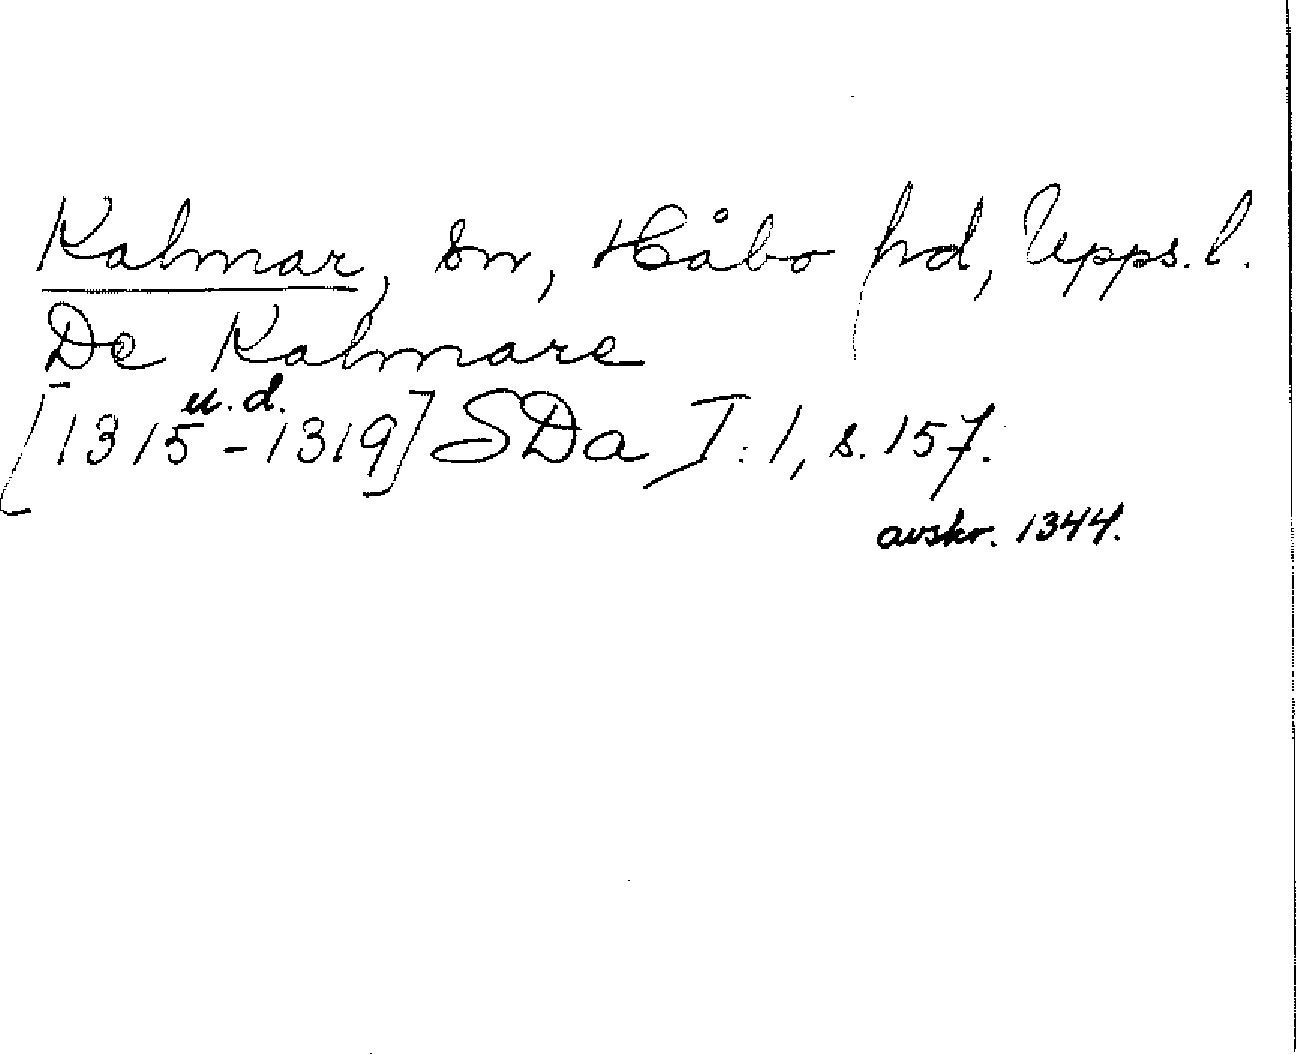 Kalmar, sn, Håbo hd, Upps. l.
De Kalmare
u. d.
[1315-1319] SDa I:1, s. 157.
avskr. 1344.